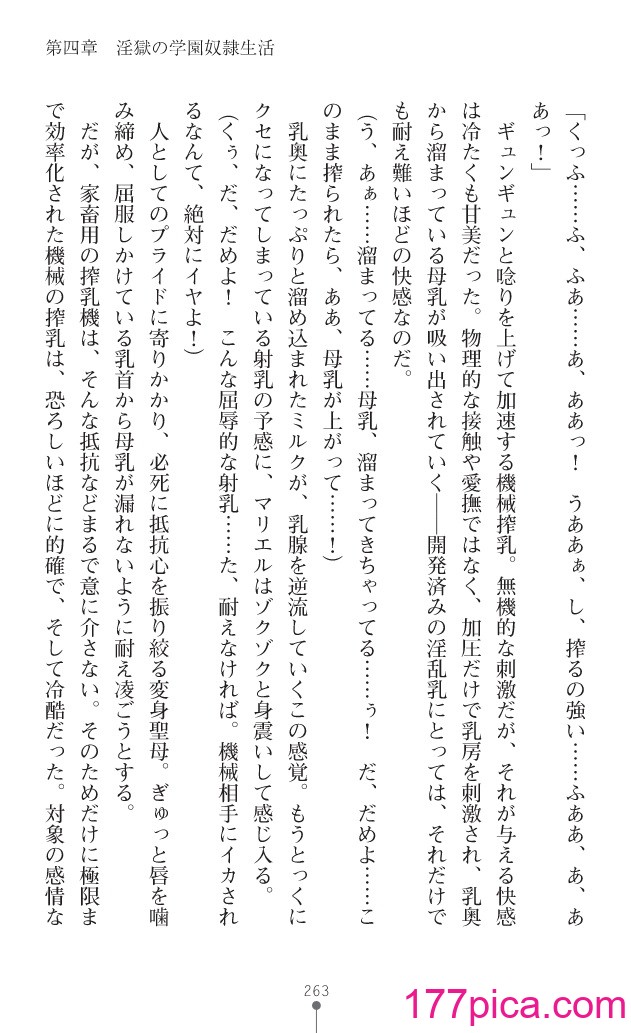 第四章　淫獄の学園奴隷生活
「くっふ……ふ、ふあ……あ、ああっ！　うああぁ、し、搾るの強い……ふああ、あ、あ
あっ！」
　ギュンギュンと唸りを上げて加速する機械搾乳。無機的な刺激だが、それが与える快感
は冷たくも甘美だった。物理的な接触や愛撫ではなく、加圧だけで乳房を刺激され、乳奥
から溜まっている母乳が吸い出されていく――開発済みの淫乱乳にとっては、それだけで
も耐え難いほどの快感なのだ。
（う、あぁ……溜まってる……母乳、溜まってきちゃってる……ぅ！　だ、だめよ……こ
のまま搾られたら、ああ、母乳が上がって……！）
　乳奥にたっぷりと溜め込まれたミルクが、乳腺を逆流していくこの感覚。もうとっくに
クセになってしまっている射乳の予感に、マリエルはゾクゾクと身震いして感じ入る。
（くぅ、だ、だめよ！　こんな屈辱的な射乳……た、耐えなければ。機械相手にイカされ
るなんて、絶対にイヤよ！）
　人としてのプライドに寄りかかり、必死に抵抗心を振り絞る変身聖母。ぎゅっと唇を噛
み締め、屈服しかけている乳首から母乳が漏れないように耐え凌ごうとする。
　だが、家畜用の搾乳機は、そんな抵抗などまるで意に介さない。そのためだけに極限ま
で効率化された機械の搾乳は、恐ろしいほどに的確で、そして冷酷だった。対象の感情な
263
177pica.com